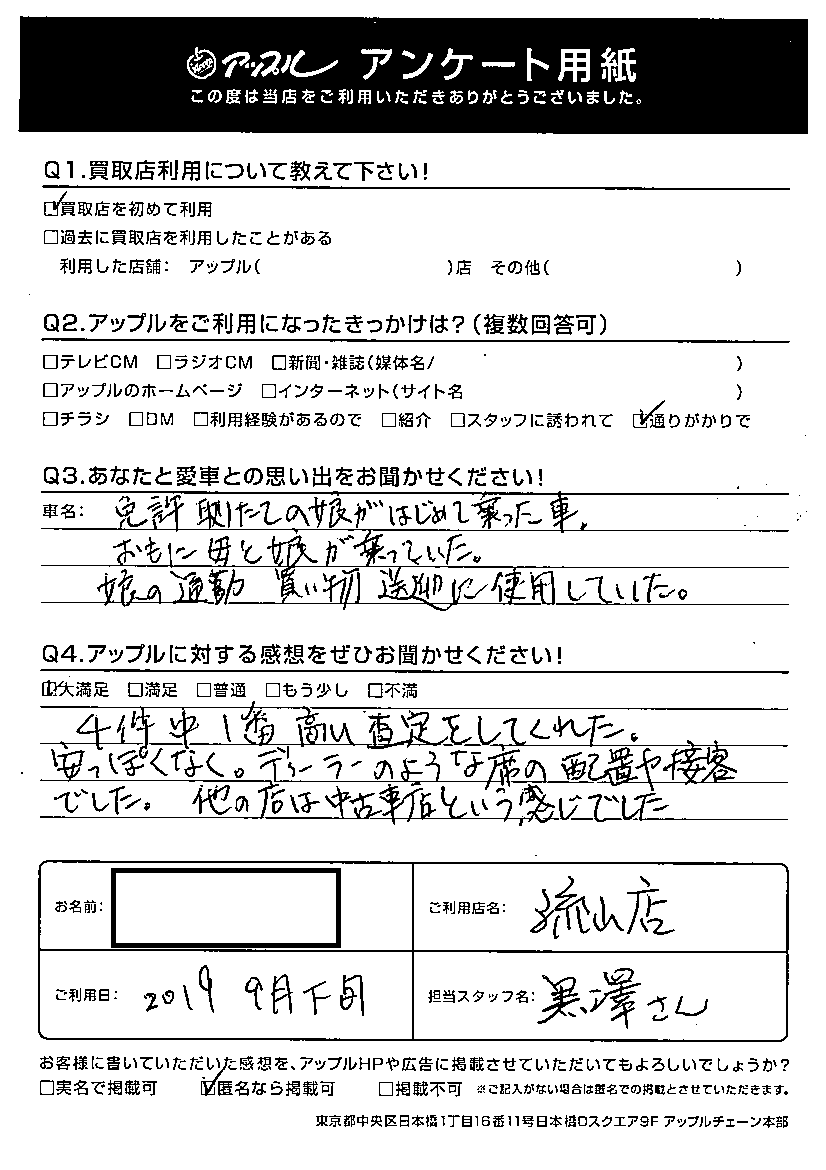 アップル アンケート用紙
この度は当店をご利用いただきありがとうございました。
Q1.買取店利用について教えて下さい!
☑買取店を初めて利用
□過去に買取店を利用したことがある
利用した店舗: アップル( )店 その他( )
Q2.アップルをご利用になったきっかけは?(複数回答可)
□テレビCM □ラジオCM □新聞・雑誌(媒体名/ )
□アップルのホームページ □インターネット(サイト名 )
□チラシ □DM □利用経験があるので □紹介 □スタッフに誘われて ☑通りがかりで
Q3.あなたと愛車との思い出をお聞かせください!
車名: 免許取りたての娘がはじめて乗った車。
おもに母と娘が乗っていた。
娘の通勤 買い物 送迎に使用していた。
Q4.アップルに対する感想をぜひお聞かせください!
☑大満足 □満足 □普通 □もう少し □不満
4件中1番高い査定をしてくれた。
安っぽくなく。ディーラーのような席の配置や接客
でした。他の店は中古車店という感じでした
お名前:
ご利用店名: 流山店
ご利用日: 2019 9月下旬
担当スタッフ名: 黒澤さん
お客様に書いていただいた感想を、アップルHPや広告に掲載させていただいてもよろしいでしょうか?
□実名で掲載可 ☑匿名なら掲載可 □掲載不可 ※ご記入がない場合は匿名での掲載とさせていただきます。
東京都中央区日本橋1丁目16番11号日本橋Dスクエア9F アップルチェーン本部